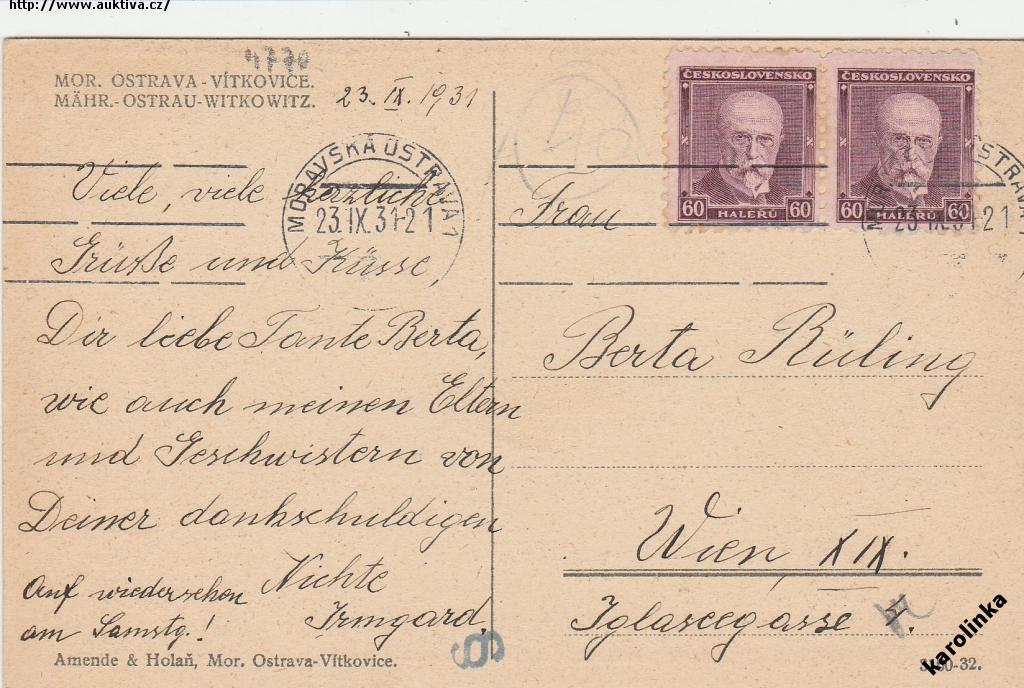 http://www.auktiva.cz/
4770
MOR. OSTRAVA - VÍTKOVICE.
MÄHR.-OSTRAU-WITKOWITZ.
23. IX. 1931
Viele, viele herzliche
Grüße und Küsse,
Dir liebe Tante Berta,
wie auch meinen Eltern
und Geschwistern von
Deiner dankschuldigen
Nichte
Irmgard.
Auf wiedersehen
am Samstg.!
Amende & Holaň, Mor. Ostrava-Vítkovice.
MORAVSKÁ OSTRAVA 1
23.IX.31-21
ČESKOSLOVENSKO
60 HALÉRŮ 60
ČESKOSLOVENSKO
60 HALÉRŮ 60
23.IX.31-21
Frau
Berta Rüling
Wien XIX.
Iglaseegasse
6
karolinka